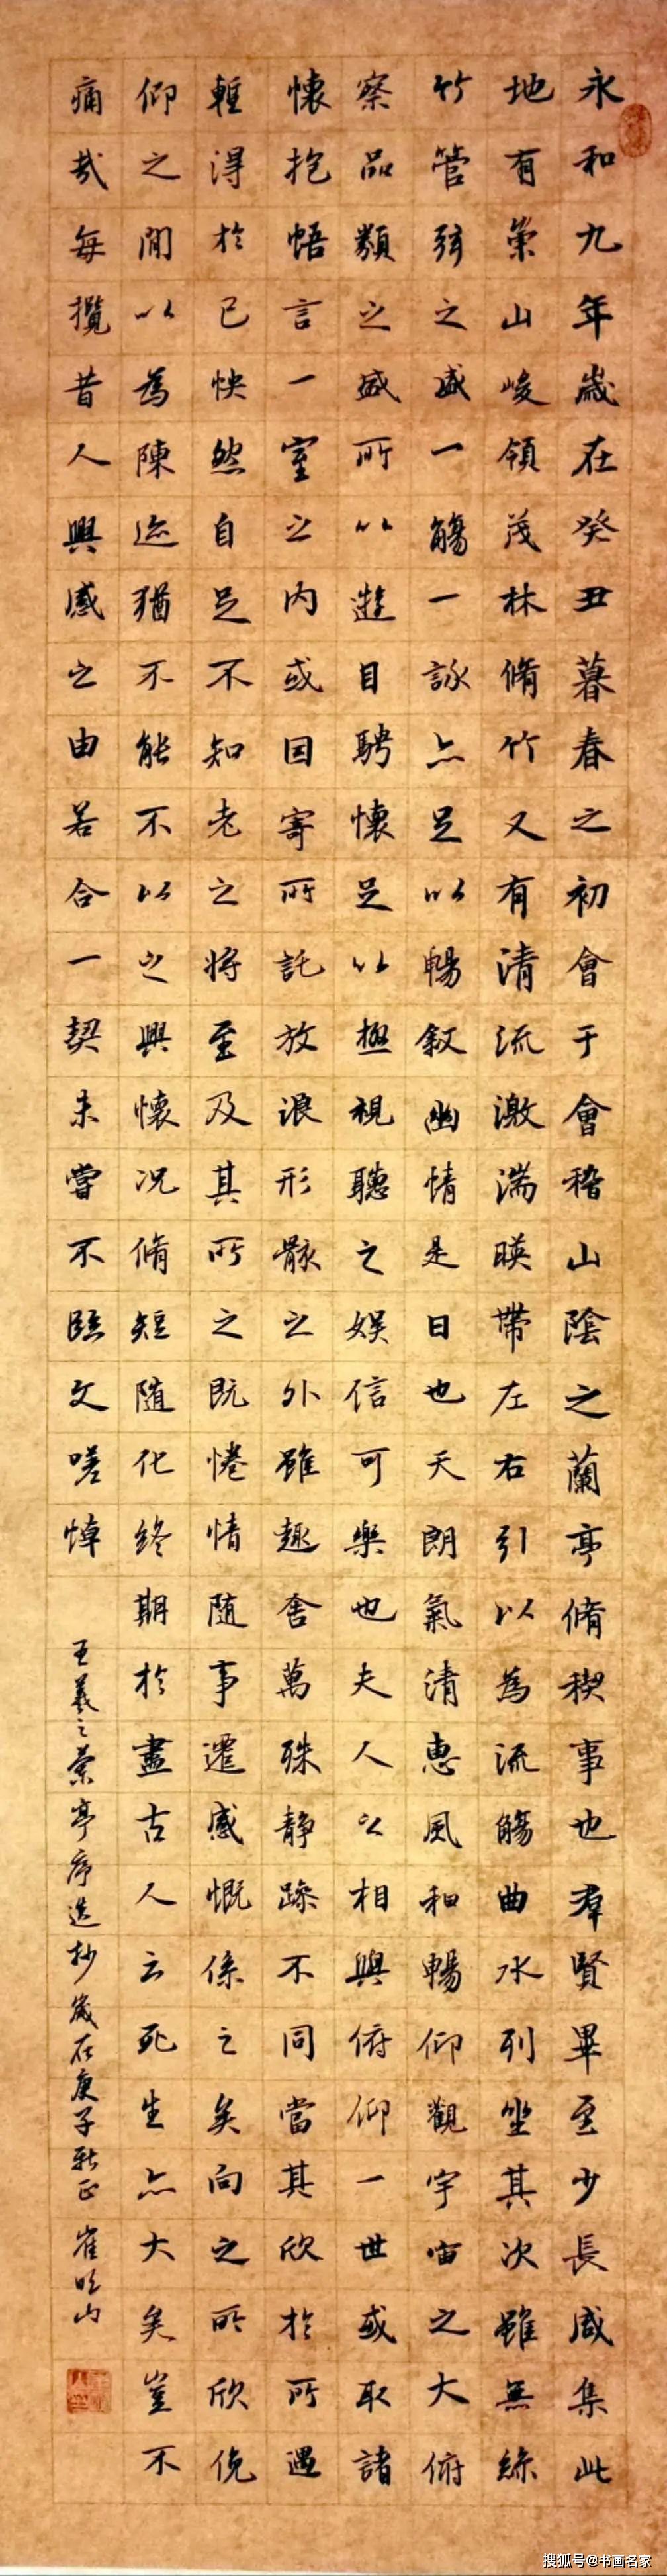 永和九年歲在癸丑暮春之初會于會稽山陰之蘭亭脩稧事也群賢畢至少長咸集此
地有崇山峻領茂林脩竹又有清流激湍暎帶左右引以為流觴曲水列坐其次雖無絲
竹管弦之盛一觴一詠亦足以暢敘幽情是日也天朗氣清惠風和暢仰觀宇宙之大俯
察品類之盛所以遊目騁懷足以極視聽之娛信可樂也夫人之相與俯仰一世或取諸
懷抱悟言一室之內或因寄所託放浪形骸之外雖趣舍萬殊静躁不同當其欣於所遇
蹔得於己快然自足不知老之將至及其所之既惓情隨事遷感慨係之矣向之所欣俛
仰之間以為陳迹猶不能不以之興懷况脩短隨化終期於盡古人云死生亦大矣豈不
痛哉每攬昔人興感之由若合一契未嘗不臨文嗟悼
王羲之蘭亭序選抄 歲在庚子新正 崔 山
搜狐号@书画名家